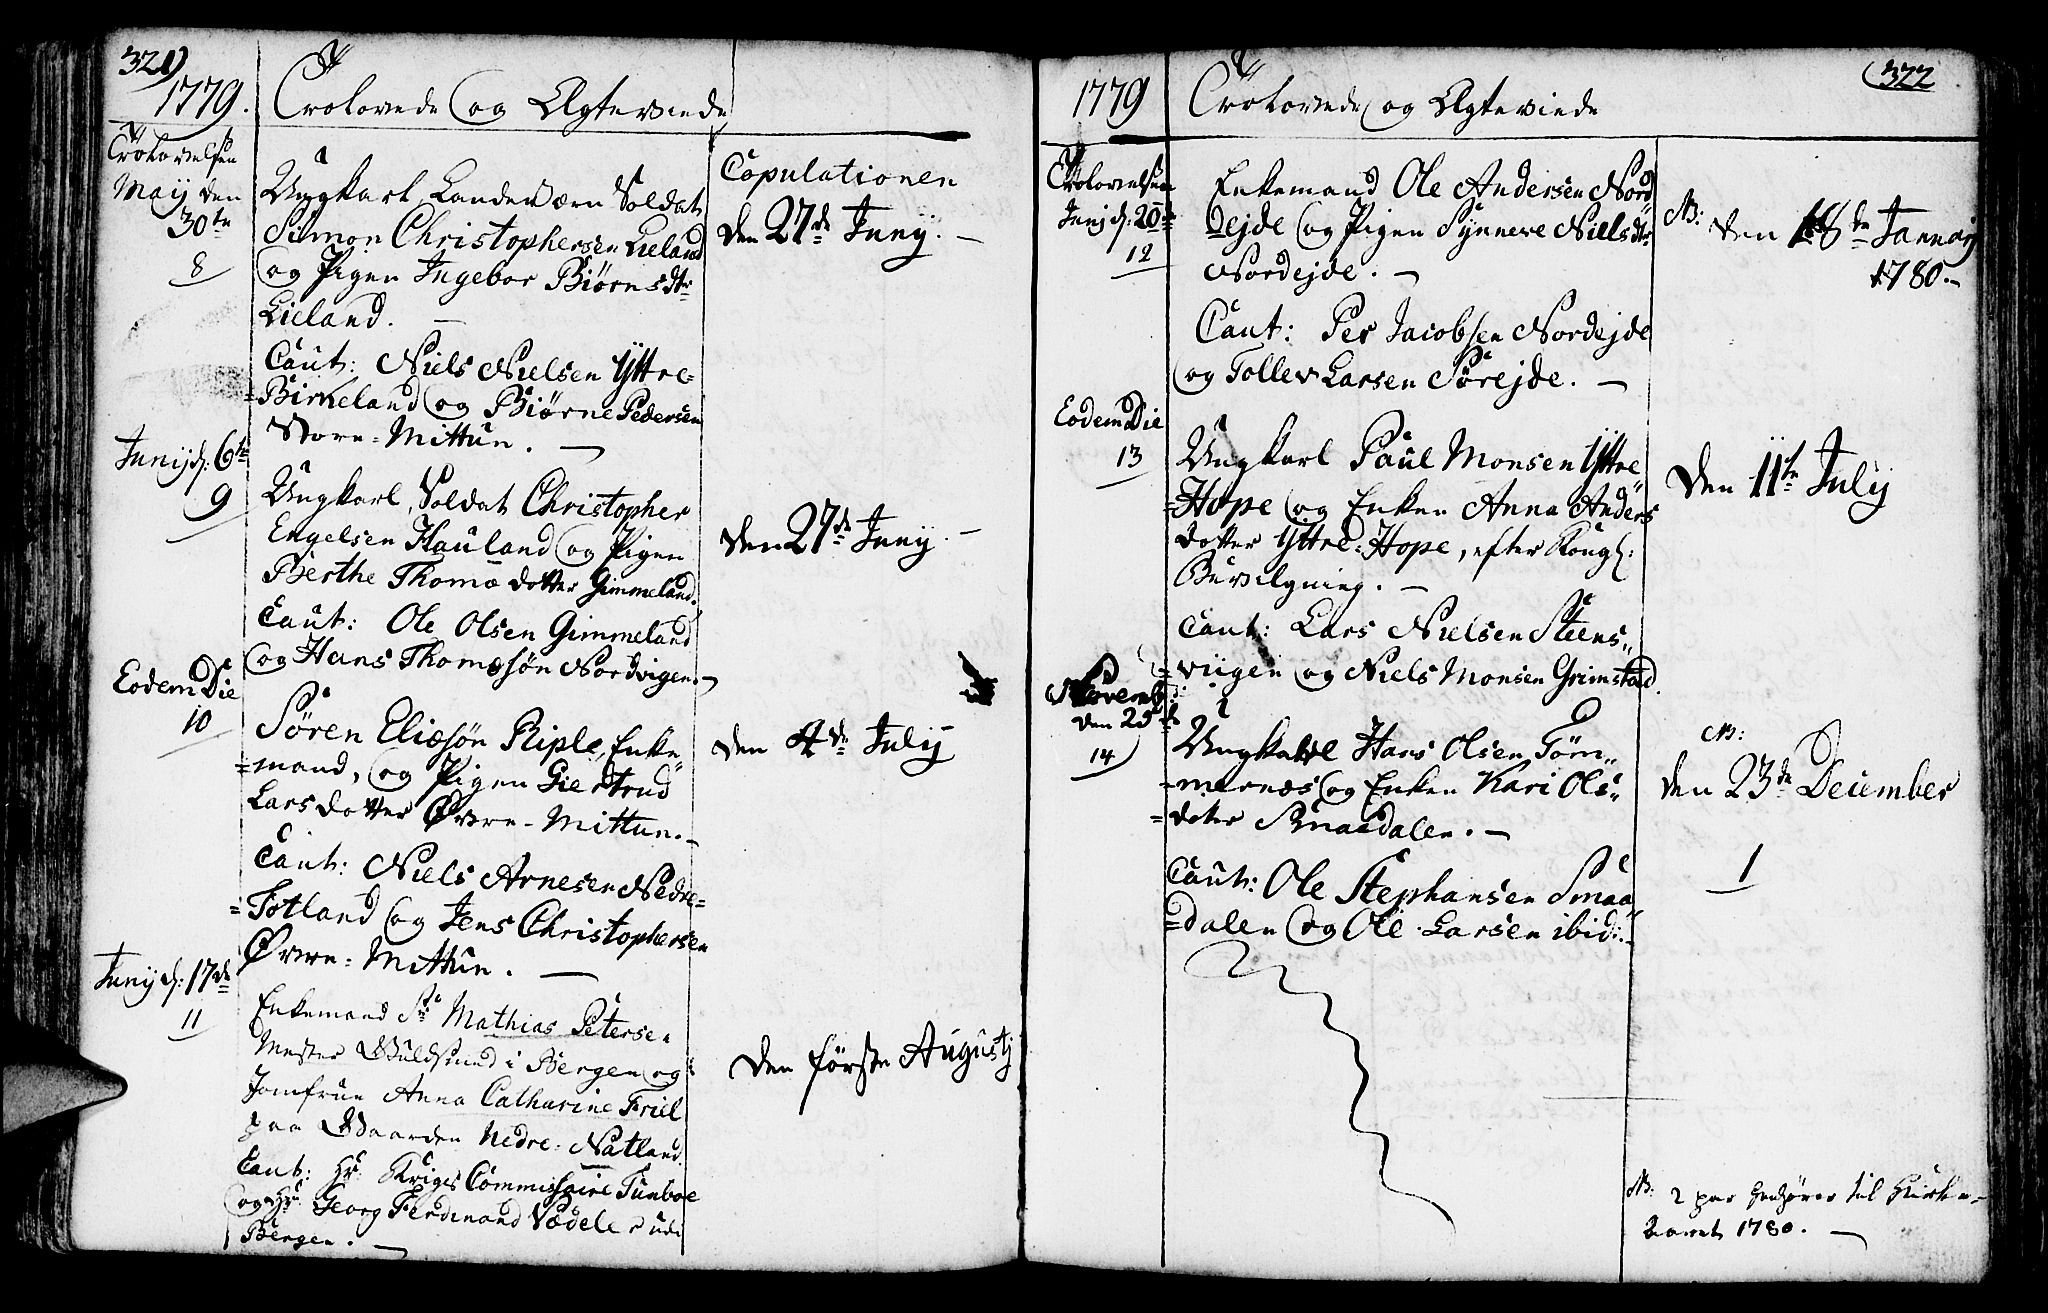 321)
1779. Trolovede og Ægteviede
Trolovelsen
May den
30te
8
Ungkarl Landeværn Soldat
Simon Christophersen Lieland
og Pigen Ingebor Biørnsdtr
Lieland.
Caut: Niels Nielsen Yttre-
=Birkeland og Biørne Pedersen
Store=Mittun.
Copulationen
den 27de Juny.
Junij d: 6te
9
Ungkarl, Soldat Christopher
Engelsen Hauland og Pigen
Berthe Thomædotter Gimmeland.
Caut: Ole Olsen Gimmeland
og Hans Thomesøn Nordvigen.
den 27de Juny.
Eodem Die
10
Søren Eliæsøn Riple, Enke-
=mand, og Pigen Giertrud
Larsdotter Øvre-Mittun.
Caut: Niels Arnesen Nedre=
=Totland og Jens Christophersen
Øvre=Mittun.
den 4de July
Junij d: 17de
11
Enkemand Sr Mathias Petersen
Mester Guldsmed i Bergen og
Jomfrue Anna Catharine Friel
paa Gaarden Nedre-Natland.
Caut: Hr Krigs Commissaire Tunboe
og Hr Georg Ferdinand Vedeler udi
Bergen.
den første Augustj
322
1779 Trolovede og Ægteviede
Trolovelsen
Junij d: 20de
12
Enkemand Ole Andersen Nord
=ejde og Pigen Synneve Nielsdtr
Nordejde.
Caut: Per Jacobsen Nordejde
og Tollev Larsen Sørejde.
NB: den 18de Januarij
1780.
Eodem Die
13
Ungkarl Paul Monsen Yttre
=Hope og Enken Anna Anders
dotter Yttre=Hope, efter Kongl:
Bevilgning.
Caut: Lars Nielsen Steens-
=viigen og Niels Monsen Grimstad.
Den 11te July
Novembr:
den 25de
14
Ungkarl Hans Olsen Tøm-
=mernæs og Enken Kari Ols-
=doter Smaadalen.
Caut: Ole Stephansen Smaa
=dalen og Ole Larsen ibid:
NB:
den 23de December
1
NB: 2 par henhører til Kirke-
Aaret 1780.